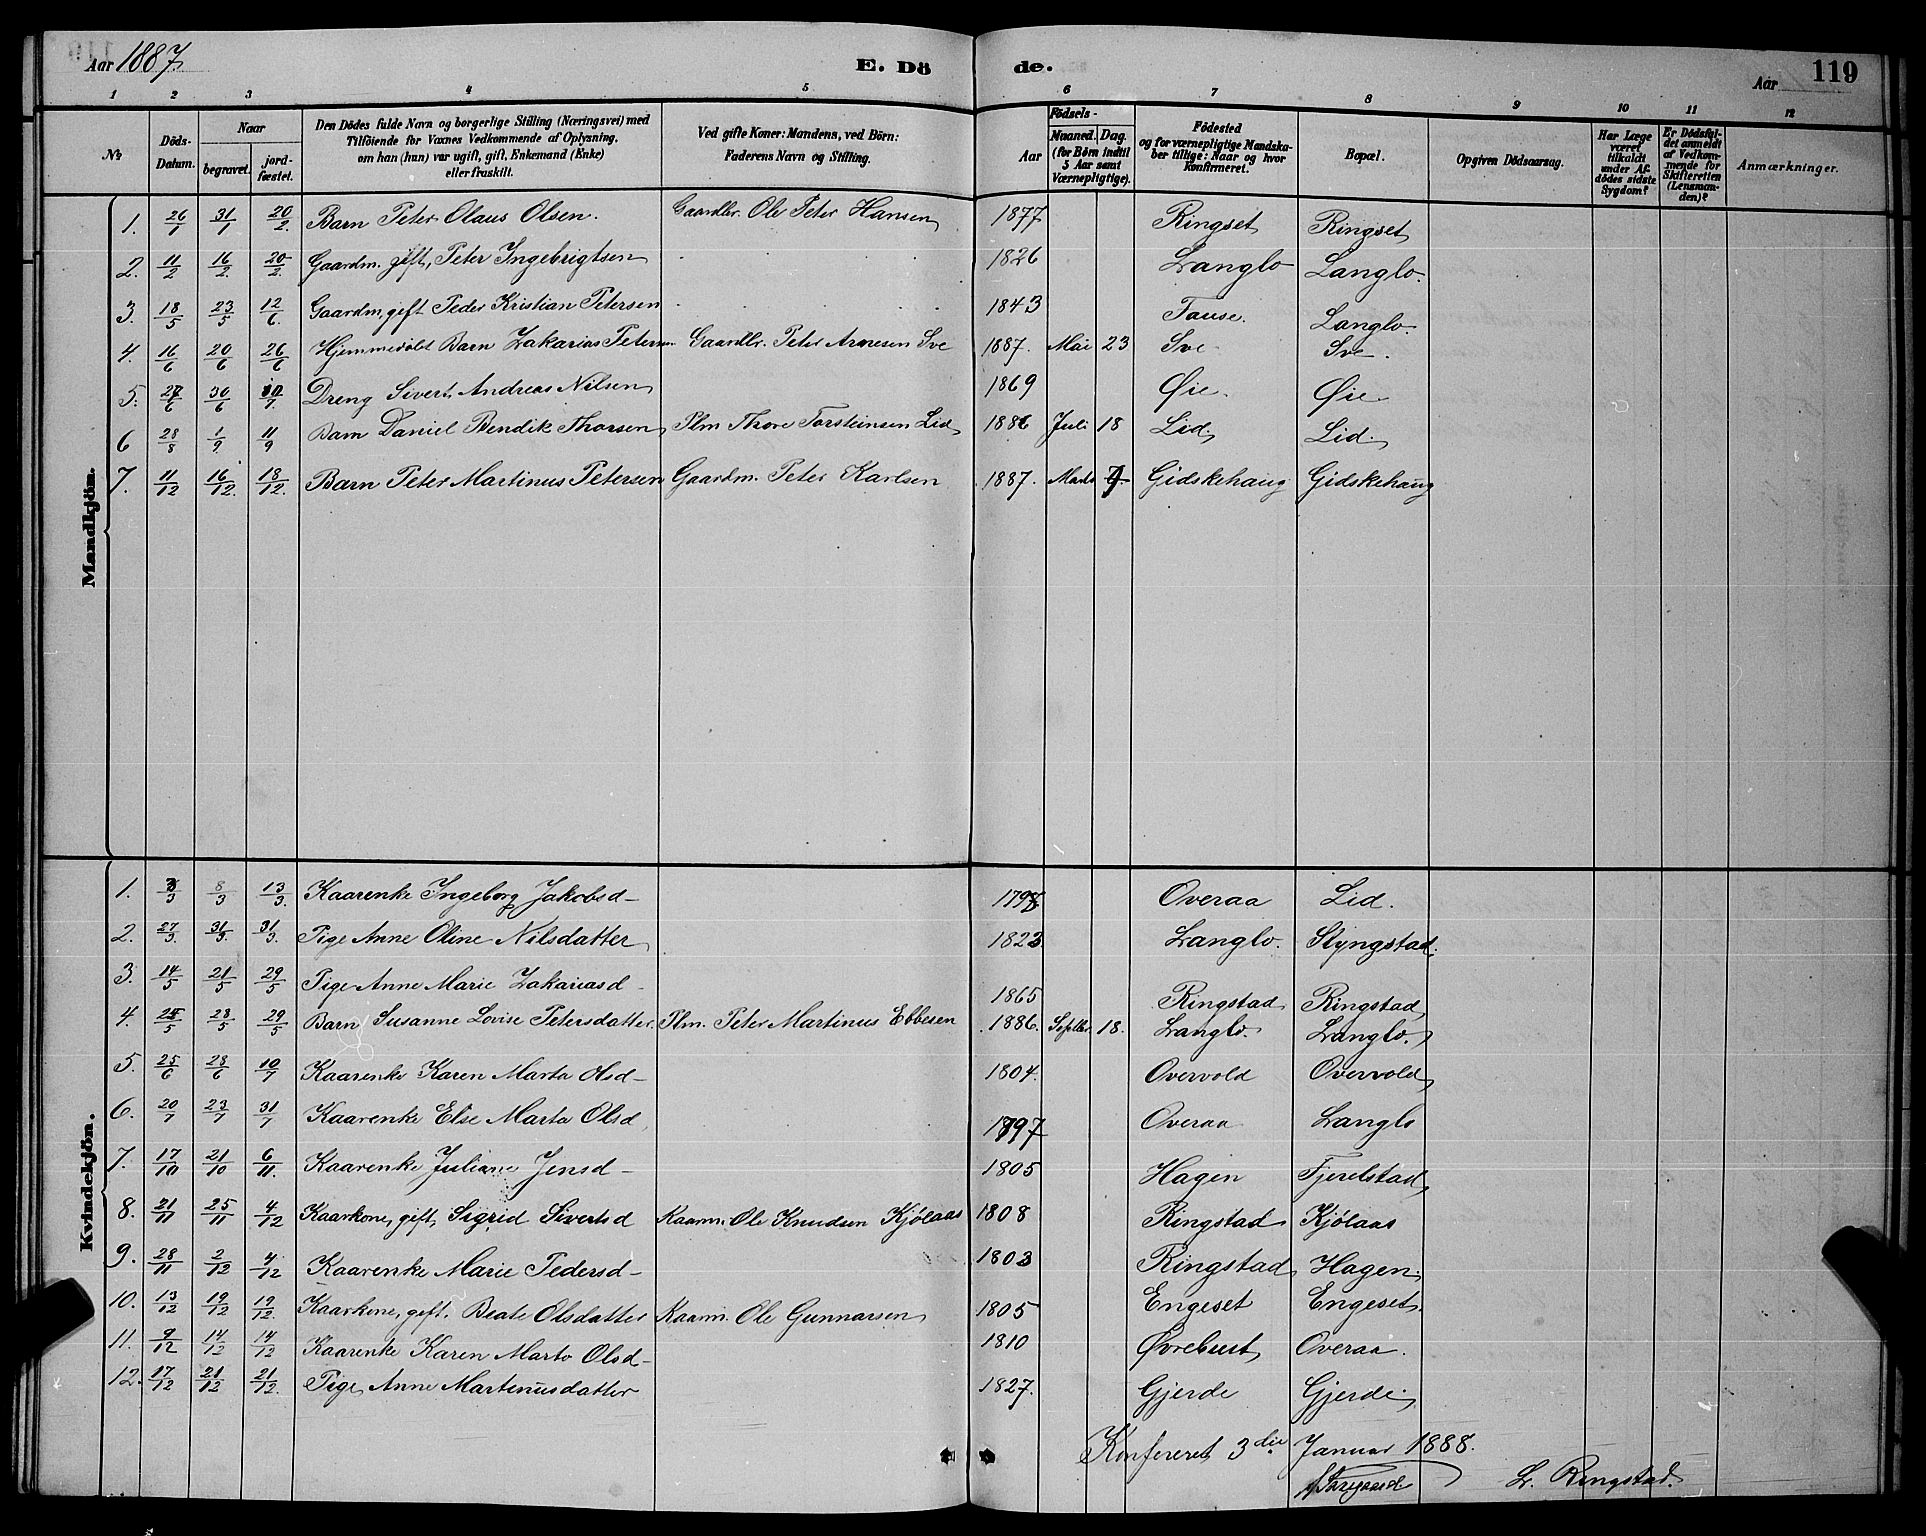 Aar 1887 E. Dö de. Aar 119
1 2 3 4 5 6 7 8 9 10 11 12
№ Döds-Datum. Naar begravet. jord-fæstet. Den Dödes fulde Navn og borgerlige Stilling (Næringsvei) med Tilföiende for Voxnes Vedkommende af Oplysning, om han (hun) var ugift, gift, Enkemand (Enke) eller fraskilt. Ved gifte Koner: Mandens, ved Börn: Faderens Navn og Stilling. Födsels- Aar Maaned. Dag. (for Börn indtil 5 Aar samt Værnepligtige). Födested og for værnepligtige Mandska-ber tillige: Naar og hvor Konfirmeret. Bopæl. Opgiven Dödsaarsag. Har Læge været tilkaldt under Af-dödes sidste Sygdom? Er Dödsfal-det anmeldt af Vedkom-mende for Skifteretten (Lensman-den)? Anmærkninger.
Mandkjön.
1. 26/1 31/1 20/2 Barn Peter Olaus Olsen. Gaardbr. Ole Peter Hansen 1877 Ringset Ringset
2. 11/2 16/2 20/2 Gaardm. gift, Peter Ingebrigtsen 1826 Langlo Langlo.
3. 18/5 23/5 12/6 Gaardm, gift Peder Kristian Petersen 1843 Fause. Langlo.
4. 16/6 20/6 26/6 Hjemmedöbt Barn Zakarias Petersen Gaardbr. Peter Arnesen Sve 1887. Mai 23 Sve Sve.
5. 27/6 30/6 10/7 Dreng Sivert Andreas Nilsen 1869 Øie. Øie.
6 28/8 1/9 11/9 Barn Daniel Bendik Thorsen Plm Thore Torsteinsen Lid 1886 Juli 18 Lid. Lid.
7. 11/12 16/12 18/12. Barn Peter Martinus Petersen Gaardm. Peter Karlsen 1887. Marts 7. Gidskehaug Gidskehaug
Kvindekjön.
1. 3/3 8/3 13/3. Kaarenke Ingeborg Jakobsd- Overaa Lid.
2. 27/3. 31/3. 31/3. Pige Anne Oline Nilsdatter 1823 Langlo. Styngstad.
3. 14/5 21/5 29/5 Pige Anne Marie Zakariasd- 1865 Ringstad Ringstad
4. 25/5 28/5 29/5 Barn Susanne Lovise Petersdatter. Plm. Peter Martinus Ebbesen 1886. Septbr. 18. Langlo. Langlo.
5. 25/6 28/6 10/7 Kaarenke Karen Marta Olsd- 1804. Overvold Overvold
6. 20/7 23/7 31/7 Kaarenke Else Marta Olsd 1797 Overaa Langlo
7. 17/10 21/10 6/11. Kaarenke Juliane Jensd- 1805 Hagen Fjerelstad
8. 21/11 25/11 4/12 Kaarkone, gift, Sigrid Sivertsd Kaarm. Ole Knudsen Kjölaas 1808 Ringstad Kjölaas
9. 28/11 2/12 4/12 Kaarenke Marie Pedersd- 1803 Ringstad Hagen.
10. 13/12 19/12 19/12. Kaarkone, gift. Beate Olsdatter Kaarm. Ole Gunnarsen 1805 Engeset Engeset.
11. 9/12 14/12 14/12 Kaarenke Karen Marta Olsd- 1810 Øvrebust Overaa.
12. 17/12 21/12 21/12. Pige Anne Martinusdatter 1827. Gjerde Gjerde.
Konfereret 3die Januar 1888.
L. Ringstad.